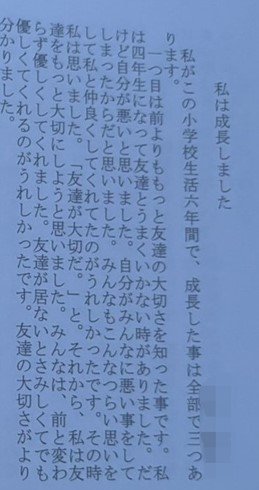 私は成長しました
私がこの小学校生活六年間で、成長した事は全部で三つあ
ります。
一つ目は前よりももっと友達の大切さを知った事です。私
は四年生になって友達とうまくいかない時がありました。だ
けど自分が悪いと思いました。自分がみんなに悪い事をして
しまったからだと思いました。みんなもこんなつらい思いを
して私と仲良くしてくれてたのがうれしかったです。その時
私は思いました。「友達が大切だ。」と。それから、私は友
達をもっと大切にしようと思いました。みんなは、前と変わ
らず優しくしてくれました。友達が居ないとさみしくてでも
優しくてくれるのがうれしかったです。友達の大切さがより
分かりました。